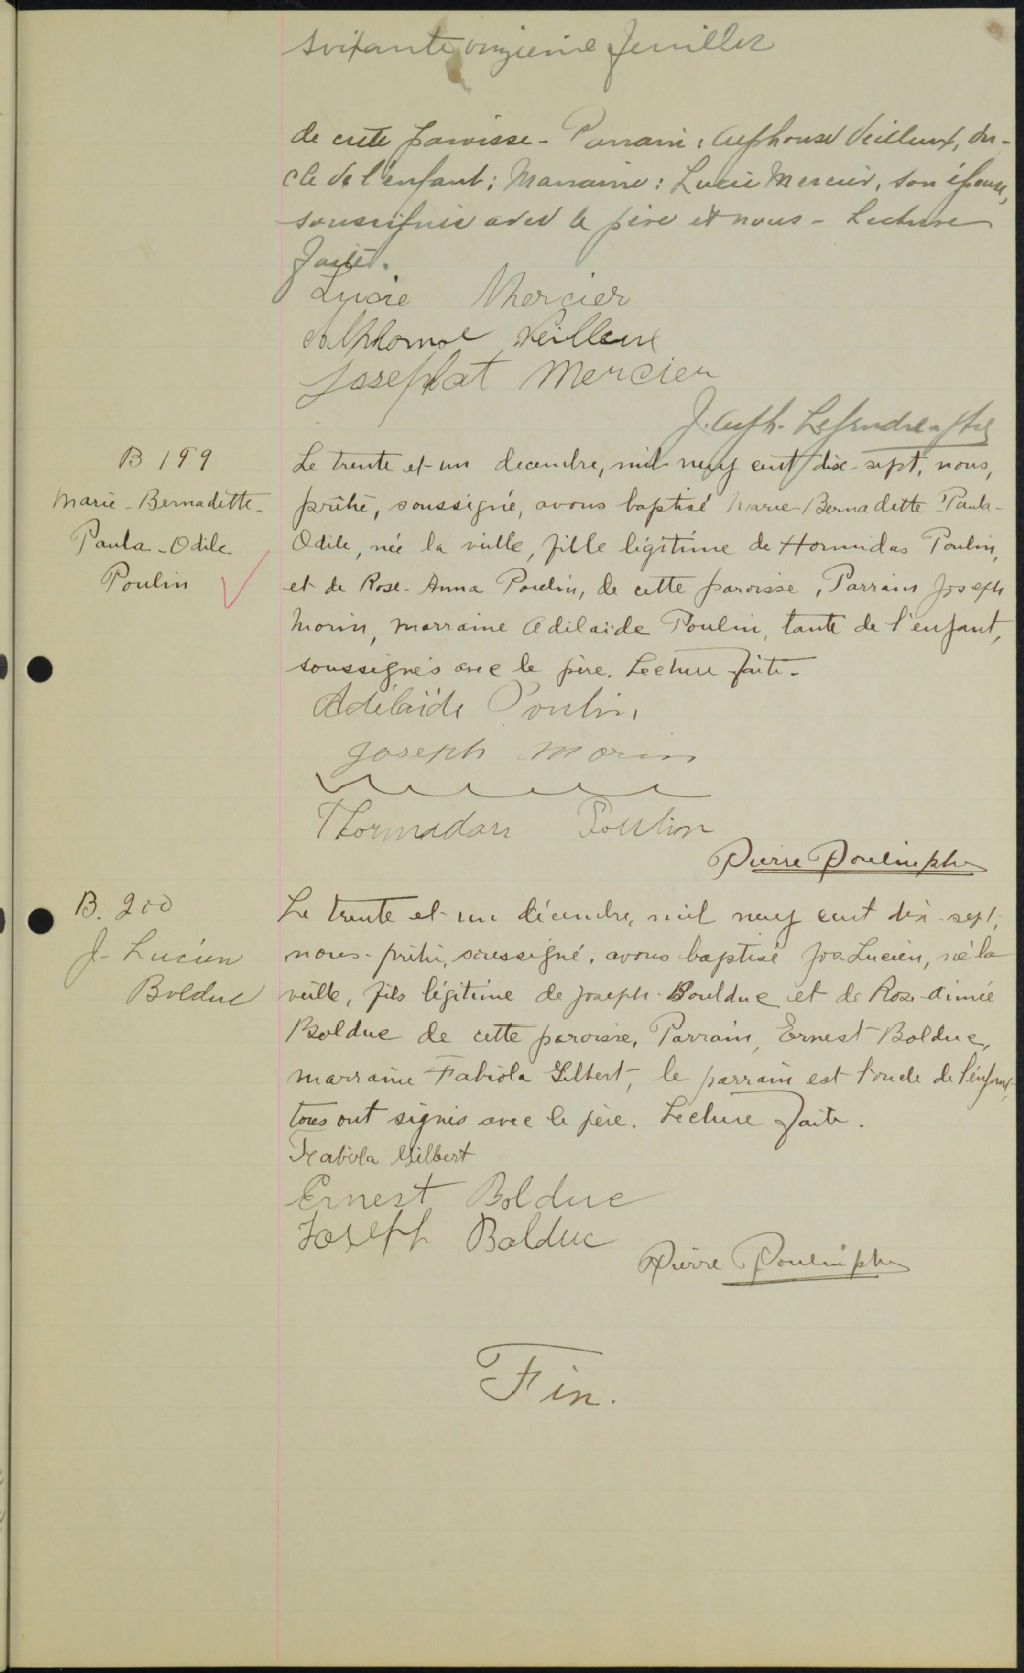 soixante onzième feuillet
de cette paroisse - Parrain: Alphonse Veilleux, on-
cle de l'enfant; Marraine: Lucie Mercier, son épouse,
soussignés avec le père et nous - Lecture
faite.
Lucie Mercier
Alphonse Veilleux
Josephat Mercier
J. Alph. Legendre, ptre
B 199
Marie-Bernadette-
Paula-Odile
Poulin
Le trente et un decembre, mil neuf cent dix-sept, nous,
prêtre, soussigné, avons baptisé Marie-Bernadette Paula-
Odile, née la veille, fille légitime de Hormidas Poulin,
et de Rose-Anna Poulin, de cette paroisse, Parrain Joseph
Morin, marraine Adélaïde Poulin, tante de l'enfant,
soussignés avec le père. Lecture faite-
Adélaïde Poulin
Joseph Morin
Poulin
Pierre Poulin ptre
B. 200
J- Lucien
Bolduc
Le trente et un décembre, mil neuf cent dix-sept,
nous-prêtre, soussigné, avons baptisé Jos-Lucien, né la
veille, fils légitime de Joseph-Boulduc et de Rose-Aimée
Bolduc de cette paroisse, Parrain, Ernest Bolduc,
marraine Fabiola Gilbert, le parrain est l'oncle de l'enfant,
tous ont signés avec le père. Lecture faite.
Fabiola Gilbert
Ernest Bolduc
Joseph Bolduc
Pierre Poulin ptre
Fin.